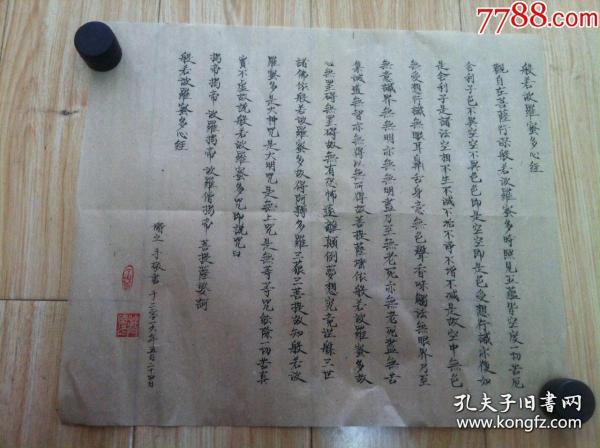 般若波羅蜜多心經
觀自在菩薩行深般若波羅蜜多時照見五蘊皆空度一切苦厄
舍利子色不異空空不異色色即是空空即是色受想行識亦復如
是舍利子是諸法空相不生不滅不垢不淨不增不減是故空中無色
無受想行識無眼耳鼻舌身意無色聲香味觸法無眼界乃至
無意識界無無明亦無無明盡乃至無老死亦無老死盡無苦
集滅道無智亦無得以無所得故菩提薩埵依般若波羅蜜多故
心無罣礙無罣礙故無有恐怖遠離顛倒夢想究竟涅槃三世
諸佛依般若波羅蜜多故得阿耨多羅三藐三菩提故知般若波
羅蜜多是大神咒是大明咒是無上咒是無等等咒能除一切苦真
實不虛故說般若波羅蜜多咒即說咒曰
揭帝揭帝 波羅揭帝 波羅僧揭帝 菩提薩婆訶
般若波羅蜜多心經
手敬書于二零一六年五月二十四日
7788.com
孔夫子旧书网